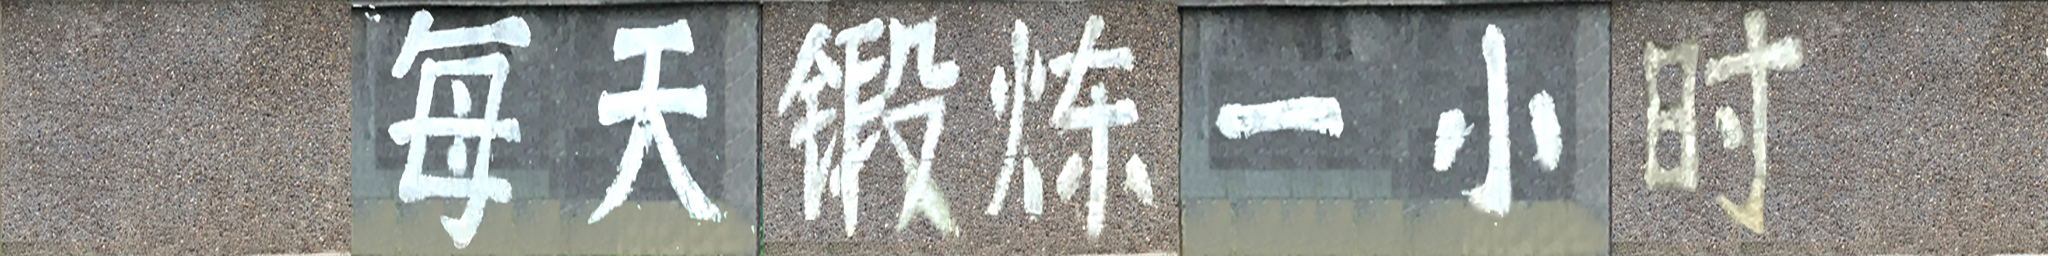 每天锻炼一小时